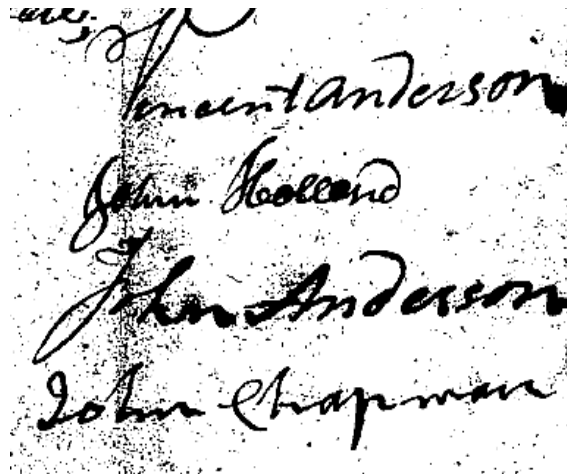 Vincent Anderson
John Holland
John Anderson
John Chapman